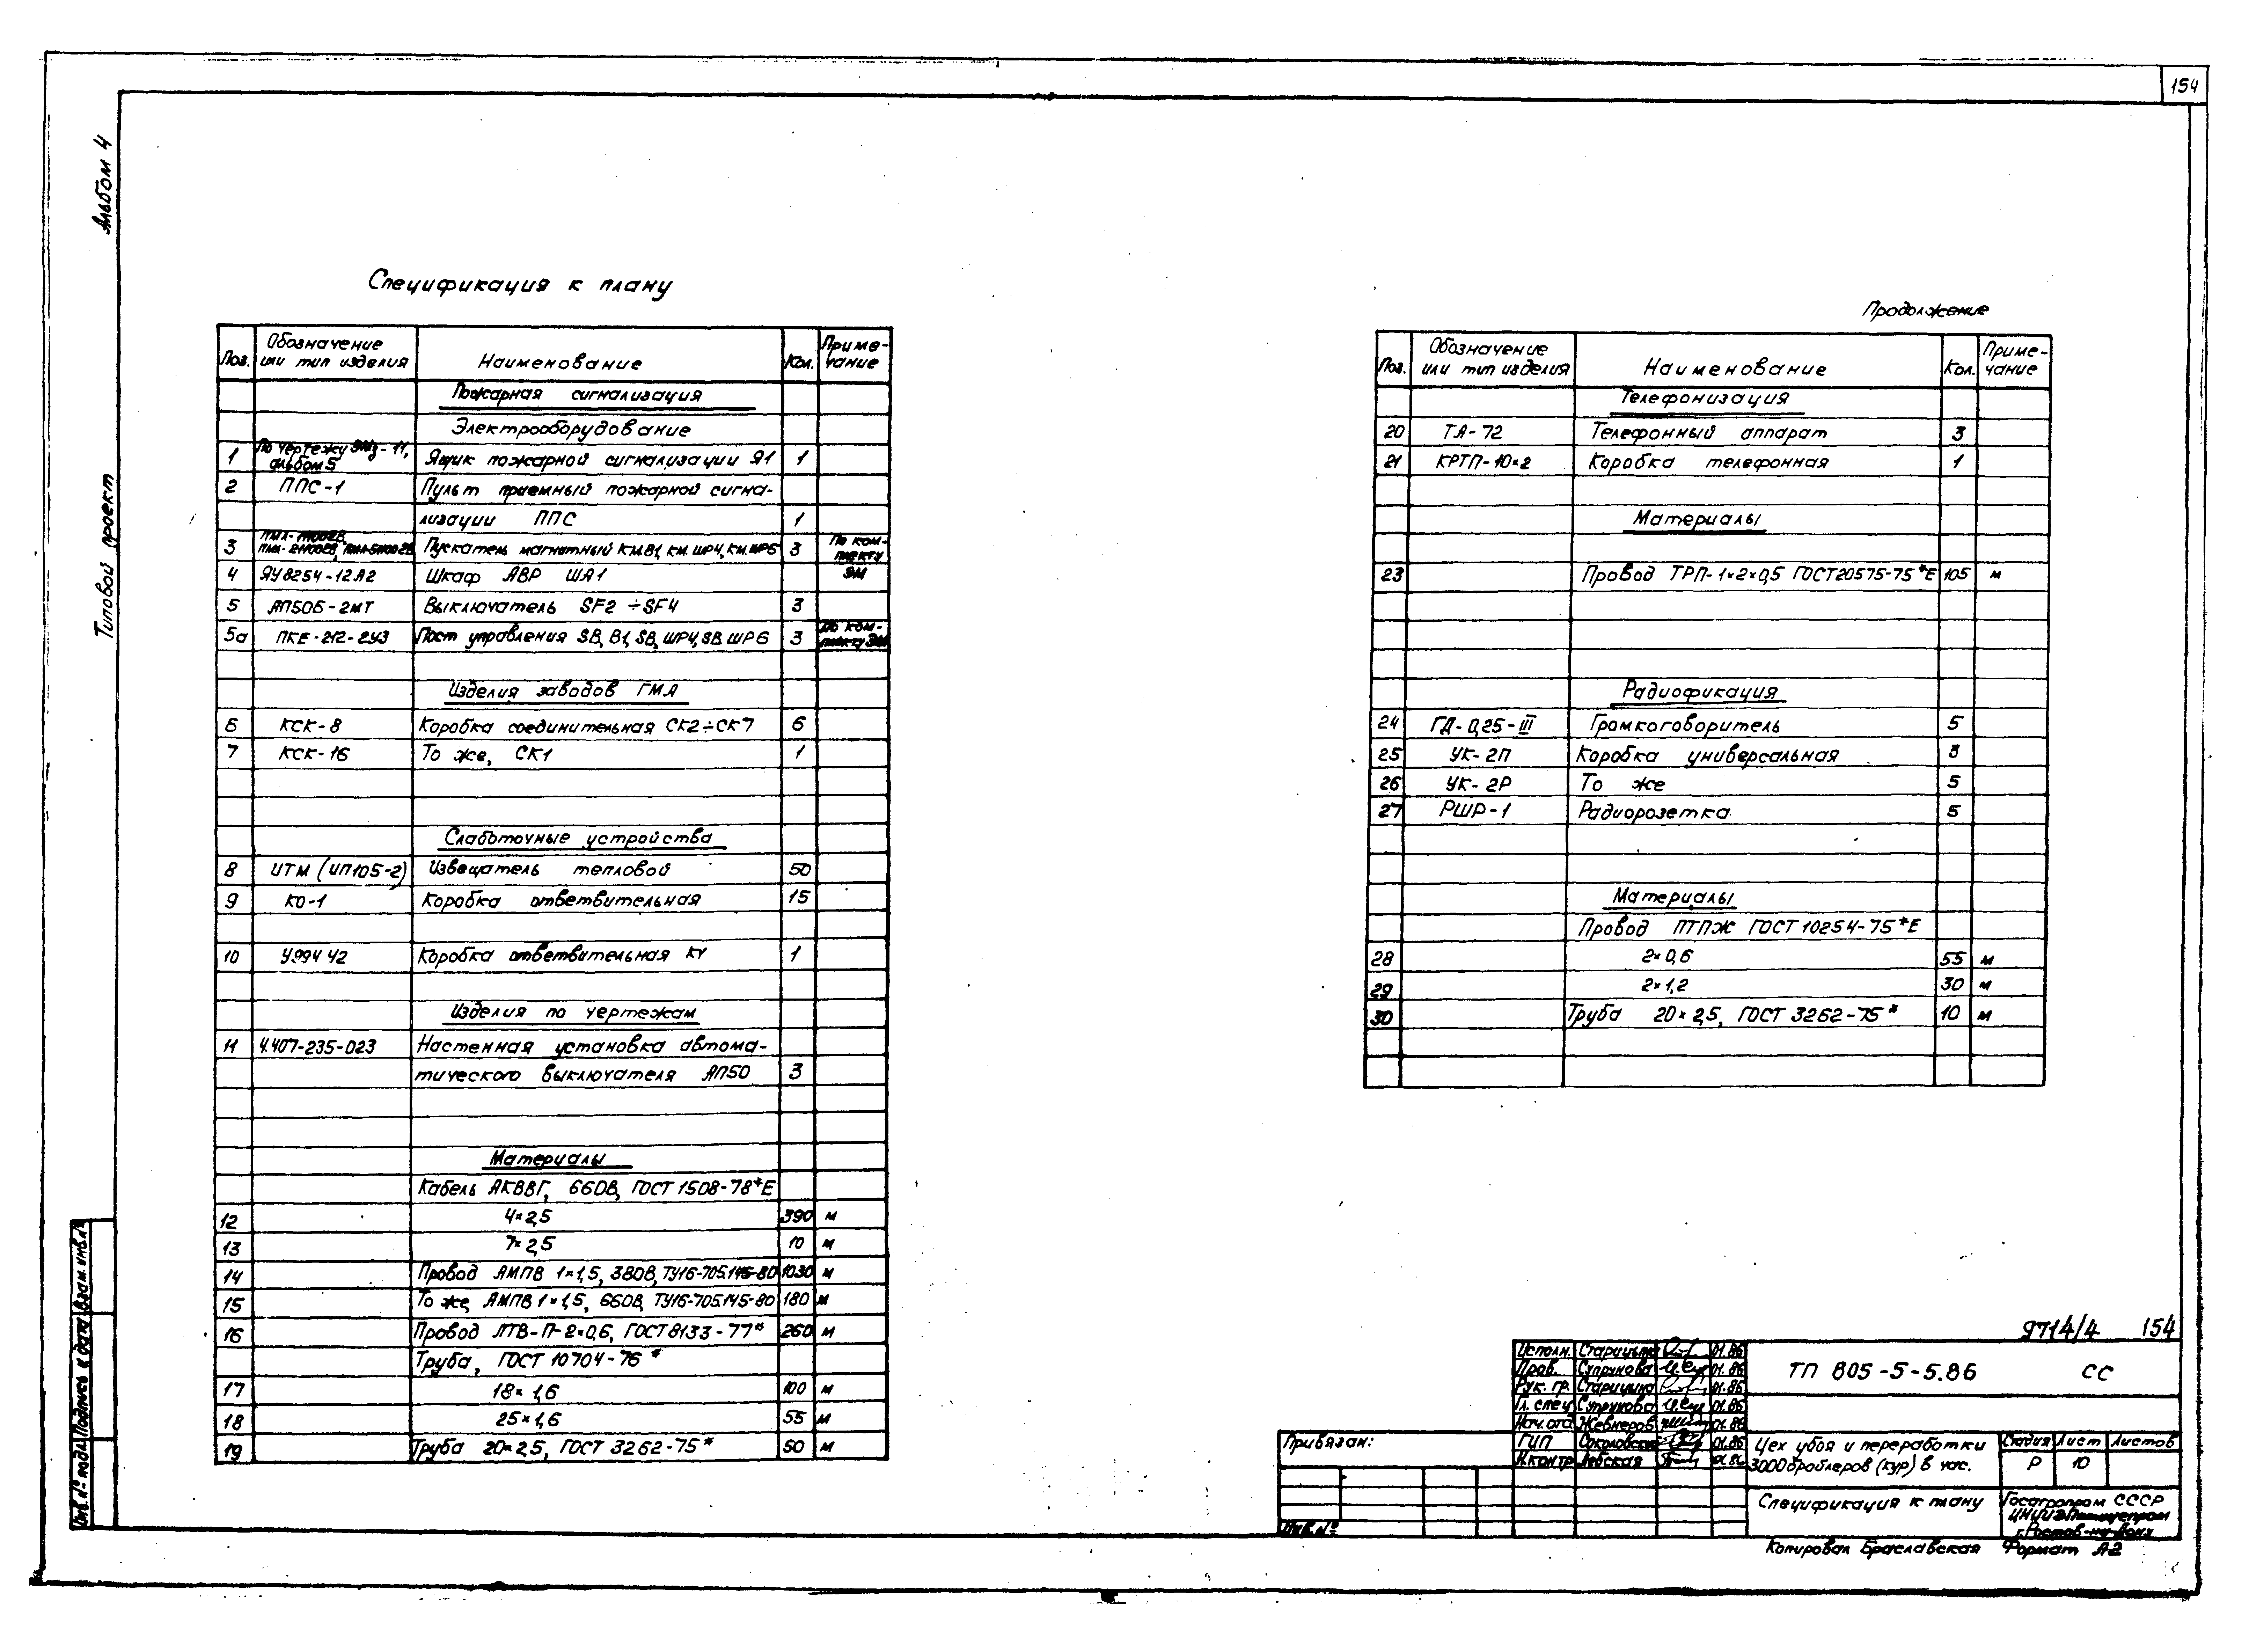 154
Альбом 4
Типовой проект
Спецификация к плану
Поз. Обозначение или тип изделия Наименование Кол. Примечание
Пожарная сигнализация
Электрооборудование
1 По чертежу ЭМз-11, альбом 5 Ящик пожарной сигнализации Я1 1
2 ППС-1 Пульт приемный пожарной сигна-
лизации ППС 1
3 Пускатель магнитный КМ.В1, КМ.ШРЧ, КМ.ШР6 3 По комплекту
4 ЯУ8254-12А2 Шкаф АВР ША1 ЭМ
5 АП50Б-2МТ Выключатель SF2÷SF4 3
5а ПКЕ-212-2У3 Пост управления SB, В1, SB, ШРЧ, SB ШР6 3 По комплекту ЭМ
Изделия заводов ГМА
6 КСК-8 Коробка соединительная СК2÷СК7 6
7 КСК-16 То же, СК1 1
Слаботочные устройства
8 ИТМ (ИП105-2) Извещатель тепловой 50
9 КО-1 Коробка ответвительная 15
10 У994 У2 Коробка ответвительная КУ 1
Изделия по чертежам
11 4.407-235-023 Настенная установка автома-
тического выключателя АП50 3
Материалы
Кабель АКВВГ, 660В, ГОСТ 1508-78*Е
12 4×2,5 390 м
13 7×2,5 10 м
14 Провод АМПВ 1×1,5, 380В, ТУ16-705.145-80 1030 м
15 То же, АМПВ 1×1,5, 660В, ТУ16-705.145-80 180 м
16 Провод ЛТВ-П-2×0,6, ГОСТ 8133-77* 260 м
Труба, ГОСТ 10704-76*
17 18×1,6 100 м
18 25×1,6 55 м
19 Труба 20×2,5, ГОСТ 3262-75* 50 м
Продолжение
Поз. Обозначение или тип изделия Наименование Кол. Примечание
Телефонизация
20 ТА-72 Телефонный аппарат 3
21 КРТП-10×2 Коробка телефонная 1
Материалы
23 Провод ТРП-1×2×0,5 ГОСТ20575-75*Е 105 м
Радиофикация
24 ГД-0,25-III Громкоговоритель 5
25 УК-2П Коробка универсальная 3
26 УК-2Р То же 5
27 РШР-1 Радиорозетка 5
Материалы
Провод ПТПЖ ГОСТ 10254-75*Е
28 2×0,6 55 м
29 2×1,2 30 м
30 Труба 20×2,5, ГОСТ 3262-75* 10 м
9714/4 154
Исполн. Старицына 01.86
Пров. Супрунова 01.86
Рук. гр. Старицына 01.86
Гл. спец Супрунова 01.86
Нач. отд Жевмеров 01.86
ГИП 01.86
Н.контр 01.86
ТП 805-5-5.86 СС
Привязан:
Инв. №
Цех убоя и переработки
3000 бройлеров (кур) в час.
Стадия Лист Листов
Р 10
Спецификация к плану
Госагропром СССР
г. Ростов-на-Дону
Копировал Браславская Формат А2
Инв. № подл. Подпись и дата Взам. инв. №